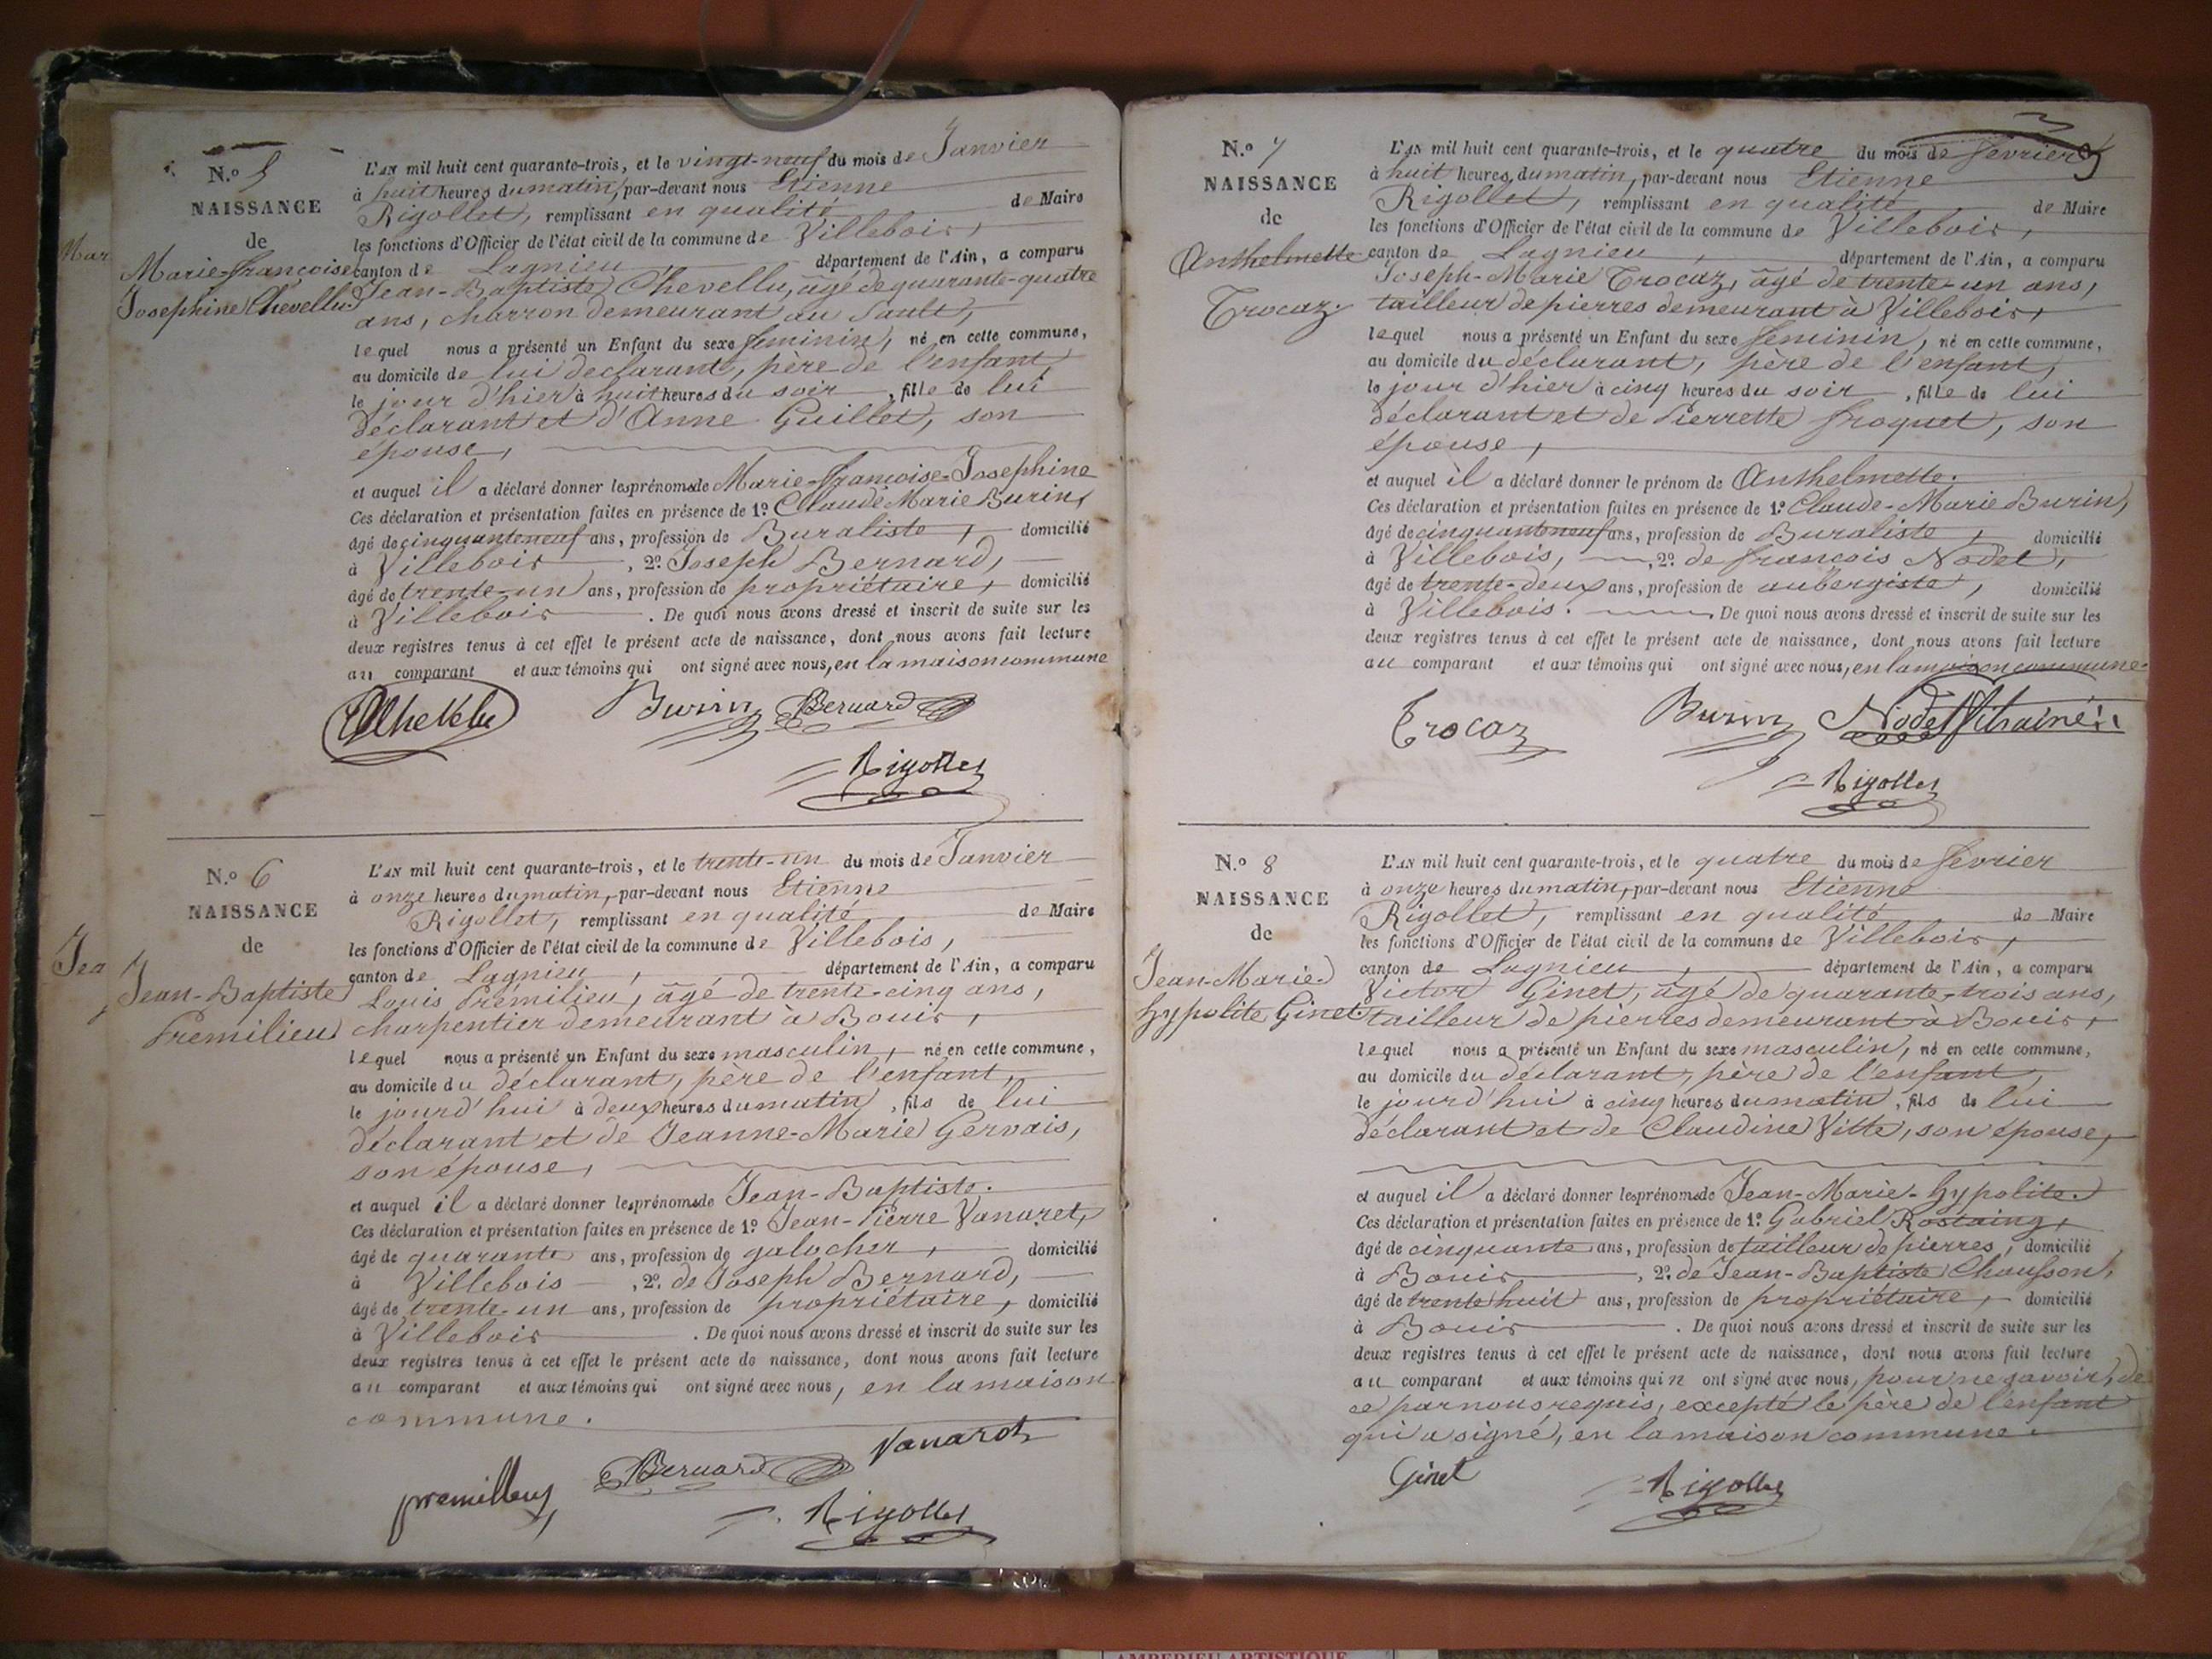 N.o 5
NAISSANCE
de
Marie-françoise
Josephine Chevellu
L'AN mil huit cent quarante-trois, et le vingt-neuf du mois de Janvier
à huit heures du matin, par-devant nous Etienne
Rigollet, remplissant en qualité de Maire
les fonctions d'Officier de l'état civil de la commune de Villebois,
canton de Lagnieu, département de l'Ain, a comparu
Jean-Baptiste Chevellu, âgé de quarante-quatre
ans, charron demeurant au Sault,
lequel nous a présenté un Enfant du sexe feminin, né en cette commune,
au domicile de lui declarant, père de l'enfant,
le jour d'hier à huit heures du soir, fille de lui
déclarant et d'Anne Guillet, son
épouse,
et auquel il a déclaré donner les prénoms de Marie-françoise-Josephine
Ces déclaration et présentation faites en présence de 1o Claude Marie Burin,
âgé de cinquante neuf ans, profession de Buraliste, domicilié
à Villebois, 2o Joseph Bernard,
âgé de trente-un ans, profession de propriétaire, domicilié
à Villebois. De quoi nous avons dressé et inscrit de suite sur les
deux registres tenus à cet effet le présent acte de naissance, dont nous avons fait lecture
au comparant et aux témoins qui ont signé avec nous, en la maison commune
Burin Bernard
Rigollet
N.o 6
NAISSANCE
de
Jean-Baptiste
Premilieu
L'AN mil huit cent quarante-trois, et le trente-un du mois de Janvier
à onze heures du matin, par-devant nous Etienne
Rigollet, remplissant en qualité de Maire
les fonctions d'Officier de l'état civil de la commune de Villebois,
canton de Lagnieu, département de l'Ain, a comparu
Louis Prémilieu, âgé de trente-cinq ans,
charpentier demeurant à Bouis,
lequel nous a présenté un Enfant du sexe masculin, né en cette commune,
au domicile du déclarant, père de l'enfant,
le jourd'hui à deux heures du matin, fils de lui
déclarant et de Jeanne-Marie Gervais,
son épouse,
et auquel il a déclaré donner les prénoms de Jean-Baptiste.
Ces déclaration et présentation faites en présence de 1o Jean-Pierre Vanaret,
âgé de quarante ans, profession de galocher, domicilié
à Villebois, 2o de Joseph Bernard,
âgé de trente-un ans, profession de propriétaire, domicilié
à Villebois. De quoi nous avons dressé et inscrit de suite sur les
deux registres tenus à cet effet le présent acte de naissance, dont nous avons fait lecture
au comparant et aux témoins qui ont signé avec nous, en la maison
commune.
Vanaret
premillieu Bernard
Rigollet
N.o 7
NAISSANCE
de
Anthelmette
Trocaz.
L'AN mil huit cent quarante-trois, et le quatre du mois de fevrier
à huit heures du matin, par-devant nous Etienne
Rigollet, remplissant en qualité de Maire
les fonctions d'Officier de l'état civil de la commune de Villebois,
canton de Lagnieu, département de l'Ain, a comparu
Joseph-Marie Trocaz, âgé de trente-un ans,
tailleur de pierres demeurant à Villebois,
lequel nous a présenté un Enfant du sexe feminin, né en cette commune,
au domicile du déclarant, père de l'enfant,
le jour d'hier à cinq heures du soir, fille de lui
déclarant et de Pierrette froquet, son
épouse,
et auquel il a déclaré donner le prénom de Anthelmette.
Ces déclaration et présentation faites en présence de 1o Claude-Marie Burin,
âgé de cinquante neuf ans, profession de Buraliste, domicilié
à Villebois, 2o de françois Nodet,
âgé de trente-deux ans, profession de aubergiste, domicilié
à Villebois. De quoi nous avons dressé et inscrit de suite sur les
deux registres tenus à cet effet le présent acte de naissance, dont nous avons fait lecture
au comparant et aux témoins qui ont signé avec nous, en la maison commune.
Trocaz Burin Nodet
Rigollet
N.o 8
NAISSANCE
de
Jean-Marie
hypolite Ginet.
L'AN mil huit cent quarante-trois, et le quatre du mois de fevrier
à onze heures du matin, par-devant nous Etienne
Rigollet, remplissant en qualité de Maire
les fonctions d'Officier de l'état civil de la commune de Villebois,
canton de Lagnieu, département de l'Ain, a comparu
Victor Ginet, âgé de quarante-trois ans,
tailleur de pierres demeurant à Bouis,
lequel nous a présenté un Enfant du sexe masculin, né en cette commune,
au domicile du déclarant, père de l'enfant,
le jourd'hui à cinq heures du matin, fils de lui
déclarant et de Claudine Vitte, son épouse,
et auquel il a déclaré donner les prénoms de Jean-Marie-hypolite.
Ces déclaration et présentation faites en présence de 1o Gabriel Rostaing,
âgé de cinquante ans, profession de tailleur de pierres, domicilié
à Bouis, 2o de Jean-Baptiste Chausson,
âgé de trente huit ans, profession de propriétaire, domicilié
à Bouis. De quoi nous avons dressé et inscrit de suite sur les
deux registres tenus à cet effet le présent acte de naissance, dont nous avons fait lecture
au comparant et aux témoins qui n ont signé avec nous, pour ne savoir, de
ce par nous requis, excepté le père de l'enfant
qui a signé, en la maison commune.
Ginet Rigollet
AMBERIEU ARTISTIQUE